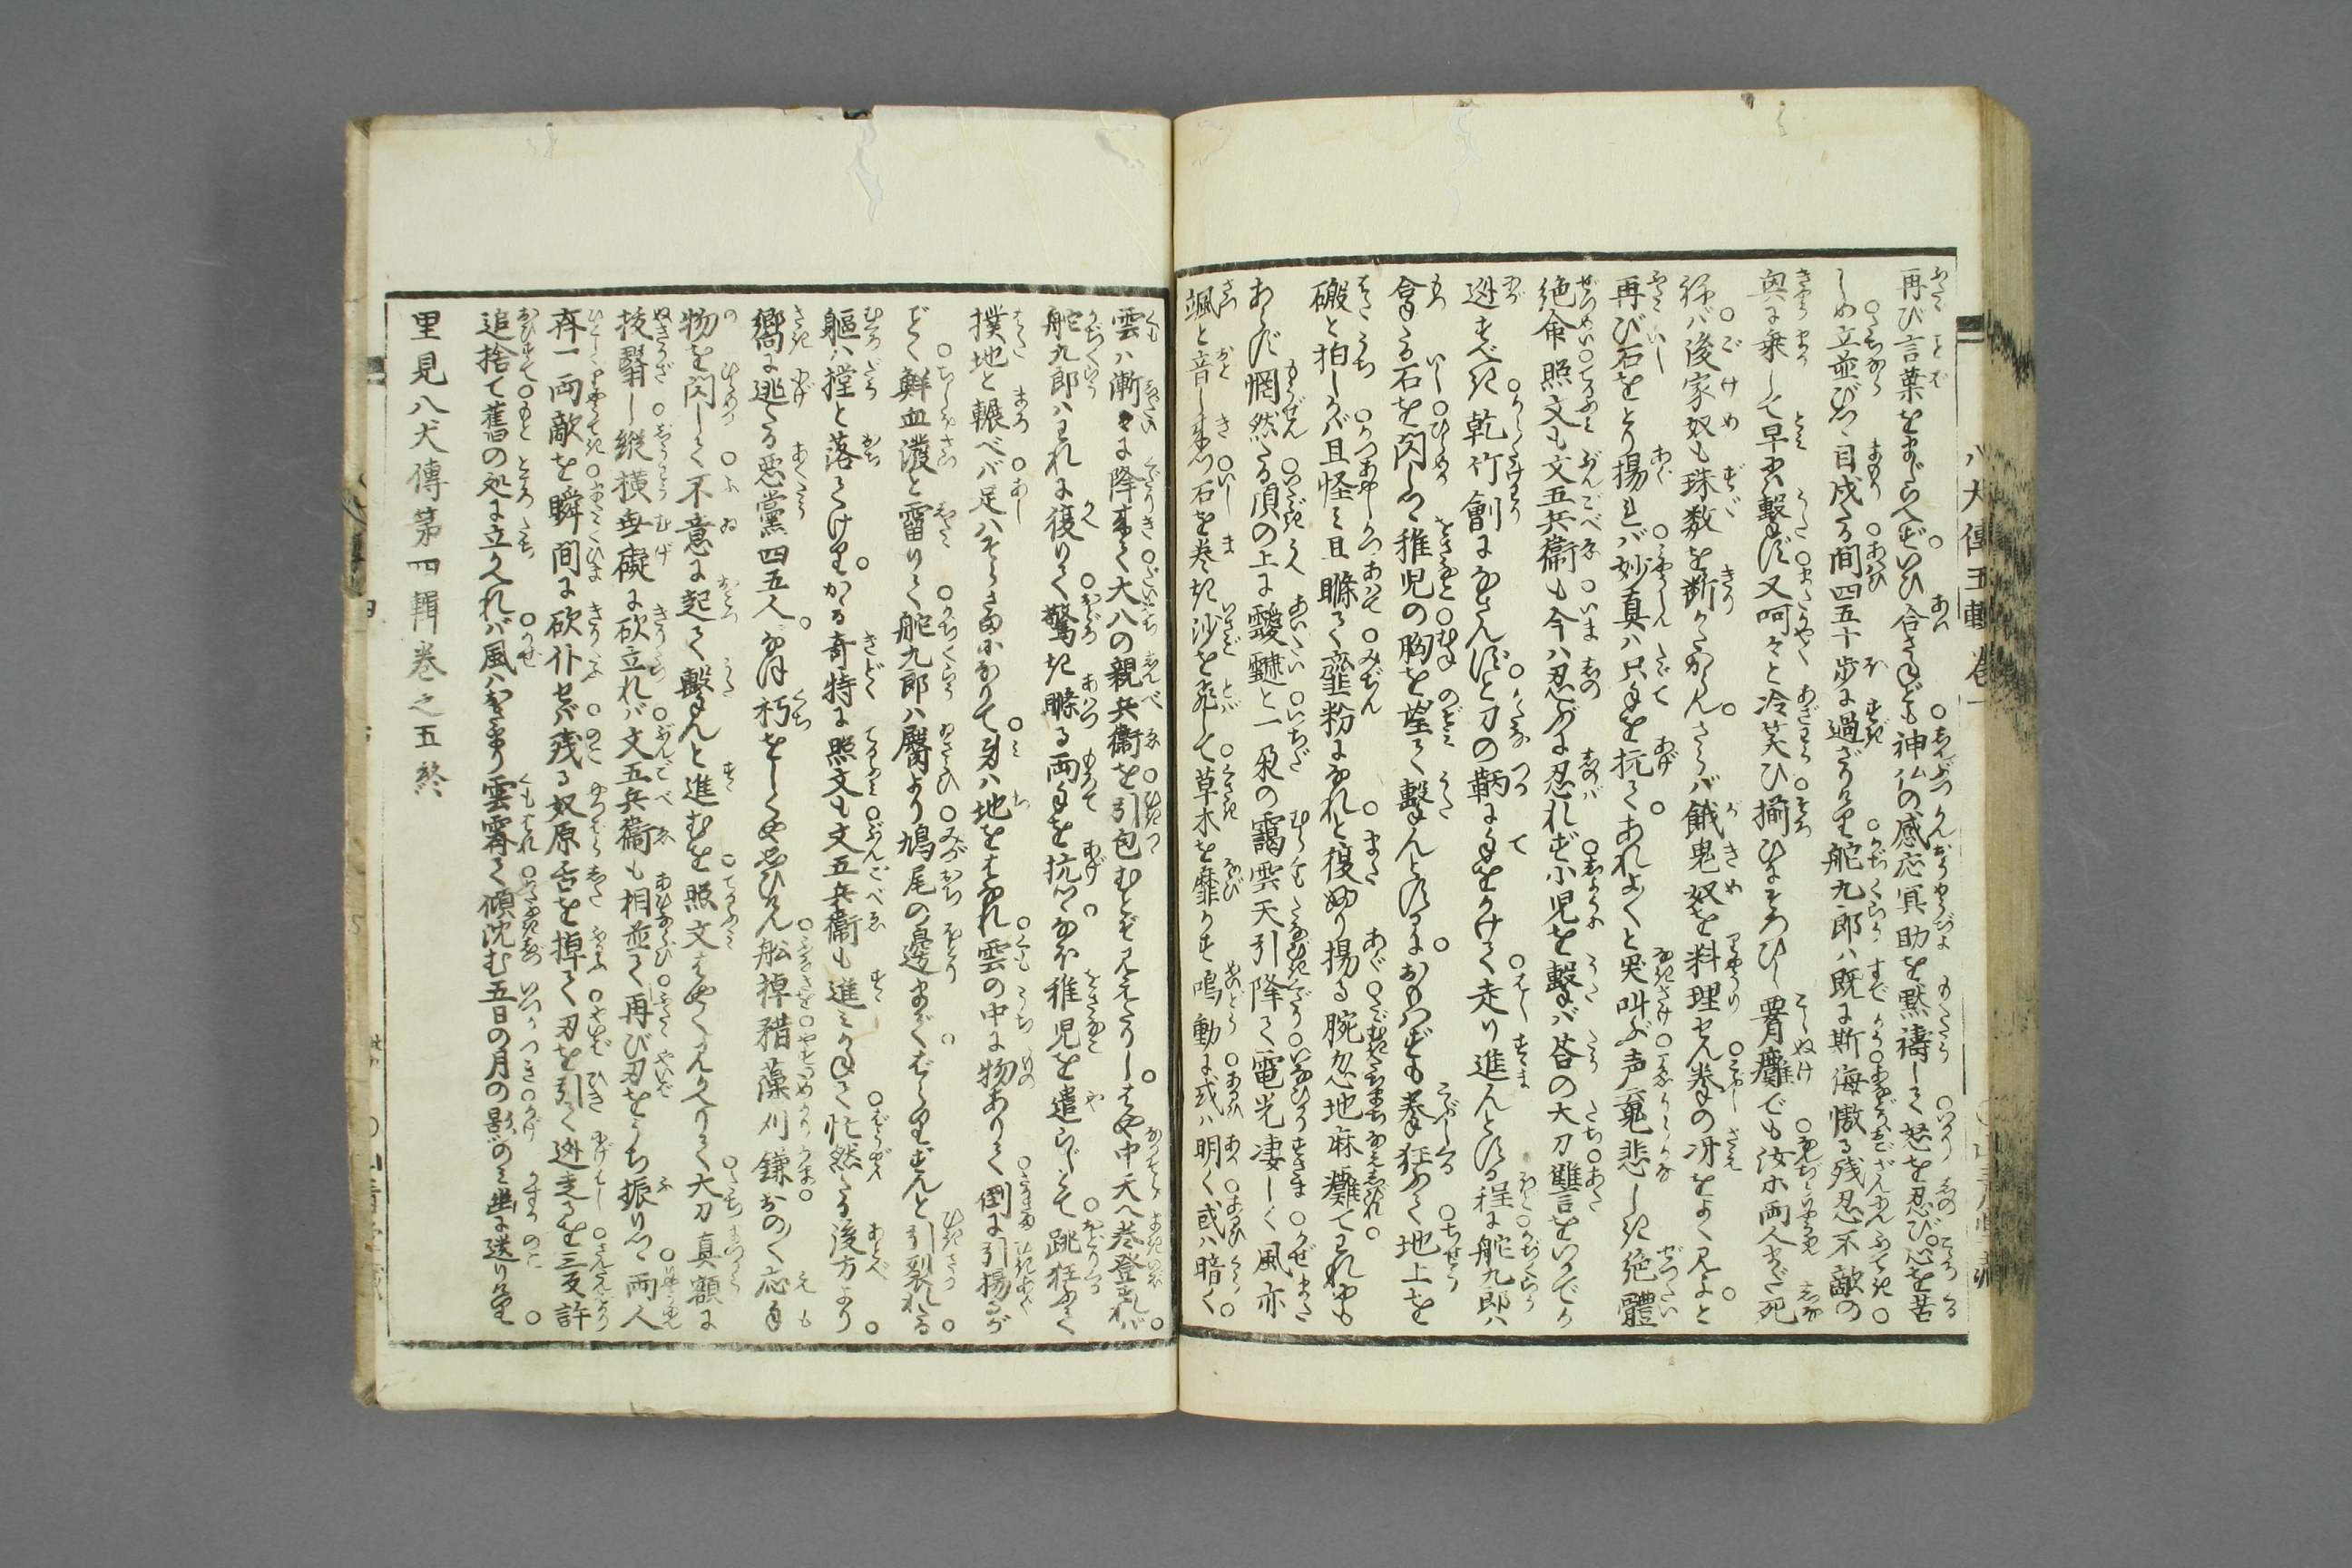 再び言葉をまじへず。いひ合さねども神仏の感応冥助を黙禱して怒を忍び心を苦
しめ立並びつゝ目戍る間四五十歩に過ざりけり舵九郎は既に斯侮慠る残忍不敵の
輿に乗して早くは撃ず又呵々と冷笑ひ揃ひもそろひし

後家奴も珠数を断りたからん。さらば餓鬼奴を料理せん拳の冴をよく見よと
再び石をとり揚れば妙真は只手を抗てあれよ〳〵と哭叫ぶ声
絶命照文も文五兵衛も今は忍ぶに忍れず小児を撃ば荅の大刀讐言をいかでか
迯すべき乾竹割になさんずと刀の鞆に手をかけて走り進んとする程に舵九郎は
拿たる石を閃しつゝ稚児の胸を望て撃んとするにおもはずも拳狂ふて地上を
礮と拍しかば且怪み且瞭て韲粉になれと復ふり揚る腕忽地麻痺てわれにも
あらず惘然たる頂の上に靉靆と一朶の靄雲天引降て電光凄しく風亦
颯と音し来つ石を巻き沙を飛して草木を靡かせ鳴動に或は明く或は暗く。
雲は漸々に降来て大八の親兵衛を引包むとぞ見えたりし。はや中天へ巻登れば。
舵九郎はわれに復りて驚き瞭る両手を抗つなほ稚児を遣らじとて跳狂ふて
撲地と輾べば足はそらさまになりて身は地をはなれ雲の中に物ありて倒に引揚るが
ごとく鮮血潑と霤りて舵九郎は臀より鳩尾の邊まで
軀は撑と落てけりかゝる奇特に照文も文五兵衛も進みかねて忙然たる後方より
嚮に逃たる悪黨四五人。なほ朽をしくや思ひけん舩棹䂎藻刈鎌おの〳〵応手
物を閃して不意に起て撃んと進むを照文はやく見かへりて大刀真額に
技翳し縦横無礙に砍立れば文五兵衛も相並て再び刃をうち振りつゝ両人
斉一両敵を瞬間に砍仆せば残る奴原舌を掉て刃を引て迯走るを三反許
追捨て舊の処に立かへれば風はをさまり雲霽て傾沈む五日の月の影のみ幽に送りけり
里見八犬傳第四輯巻之五終